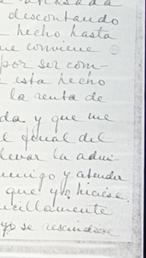 atrasada
descontando
hecho hasta
ue conviene
por ser com-
esta hecho
la renta de
da y que me
l genal del
llevar la admi-
migo y atender
que yo hiciese.
ncillamente
yo se rescindiese